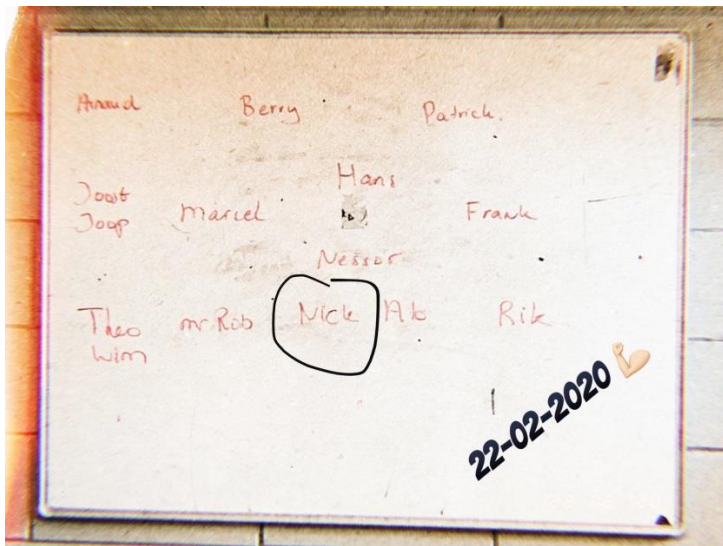 Arnoud Berry Patrick.
Hans
Joost
Joop Marcel Frank
Nessor
Theo mr. Rob Nick Ab Rik
Wim
22-02-2020 💪🏻